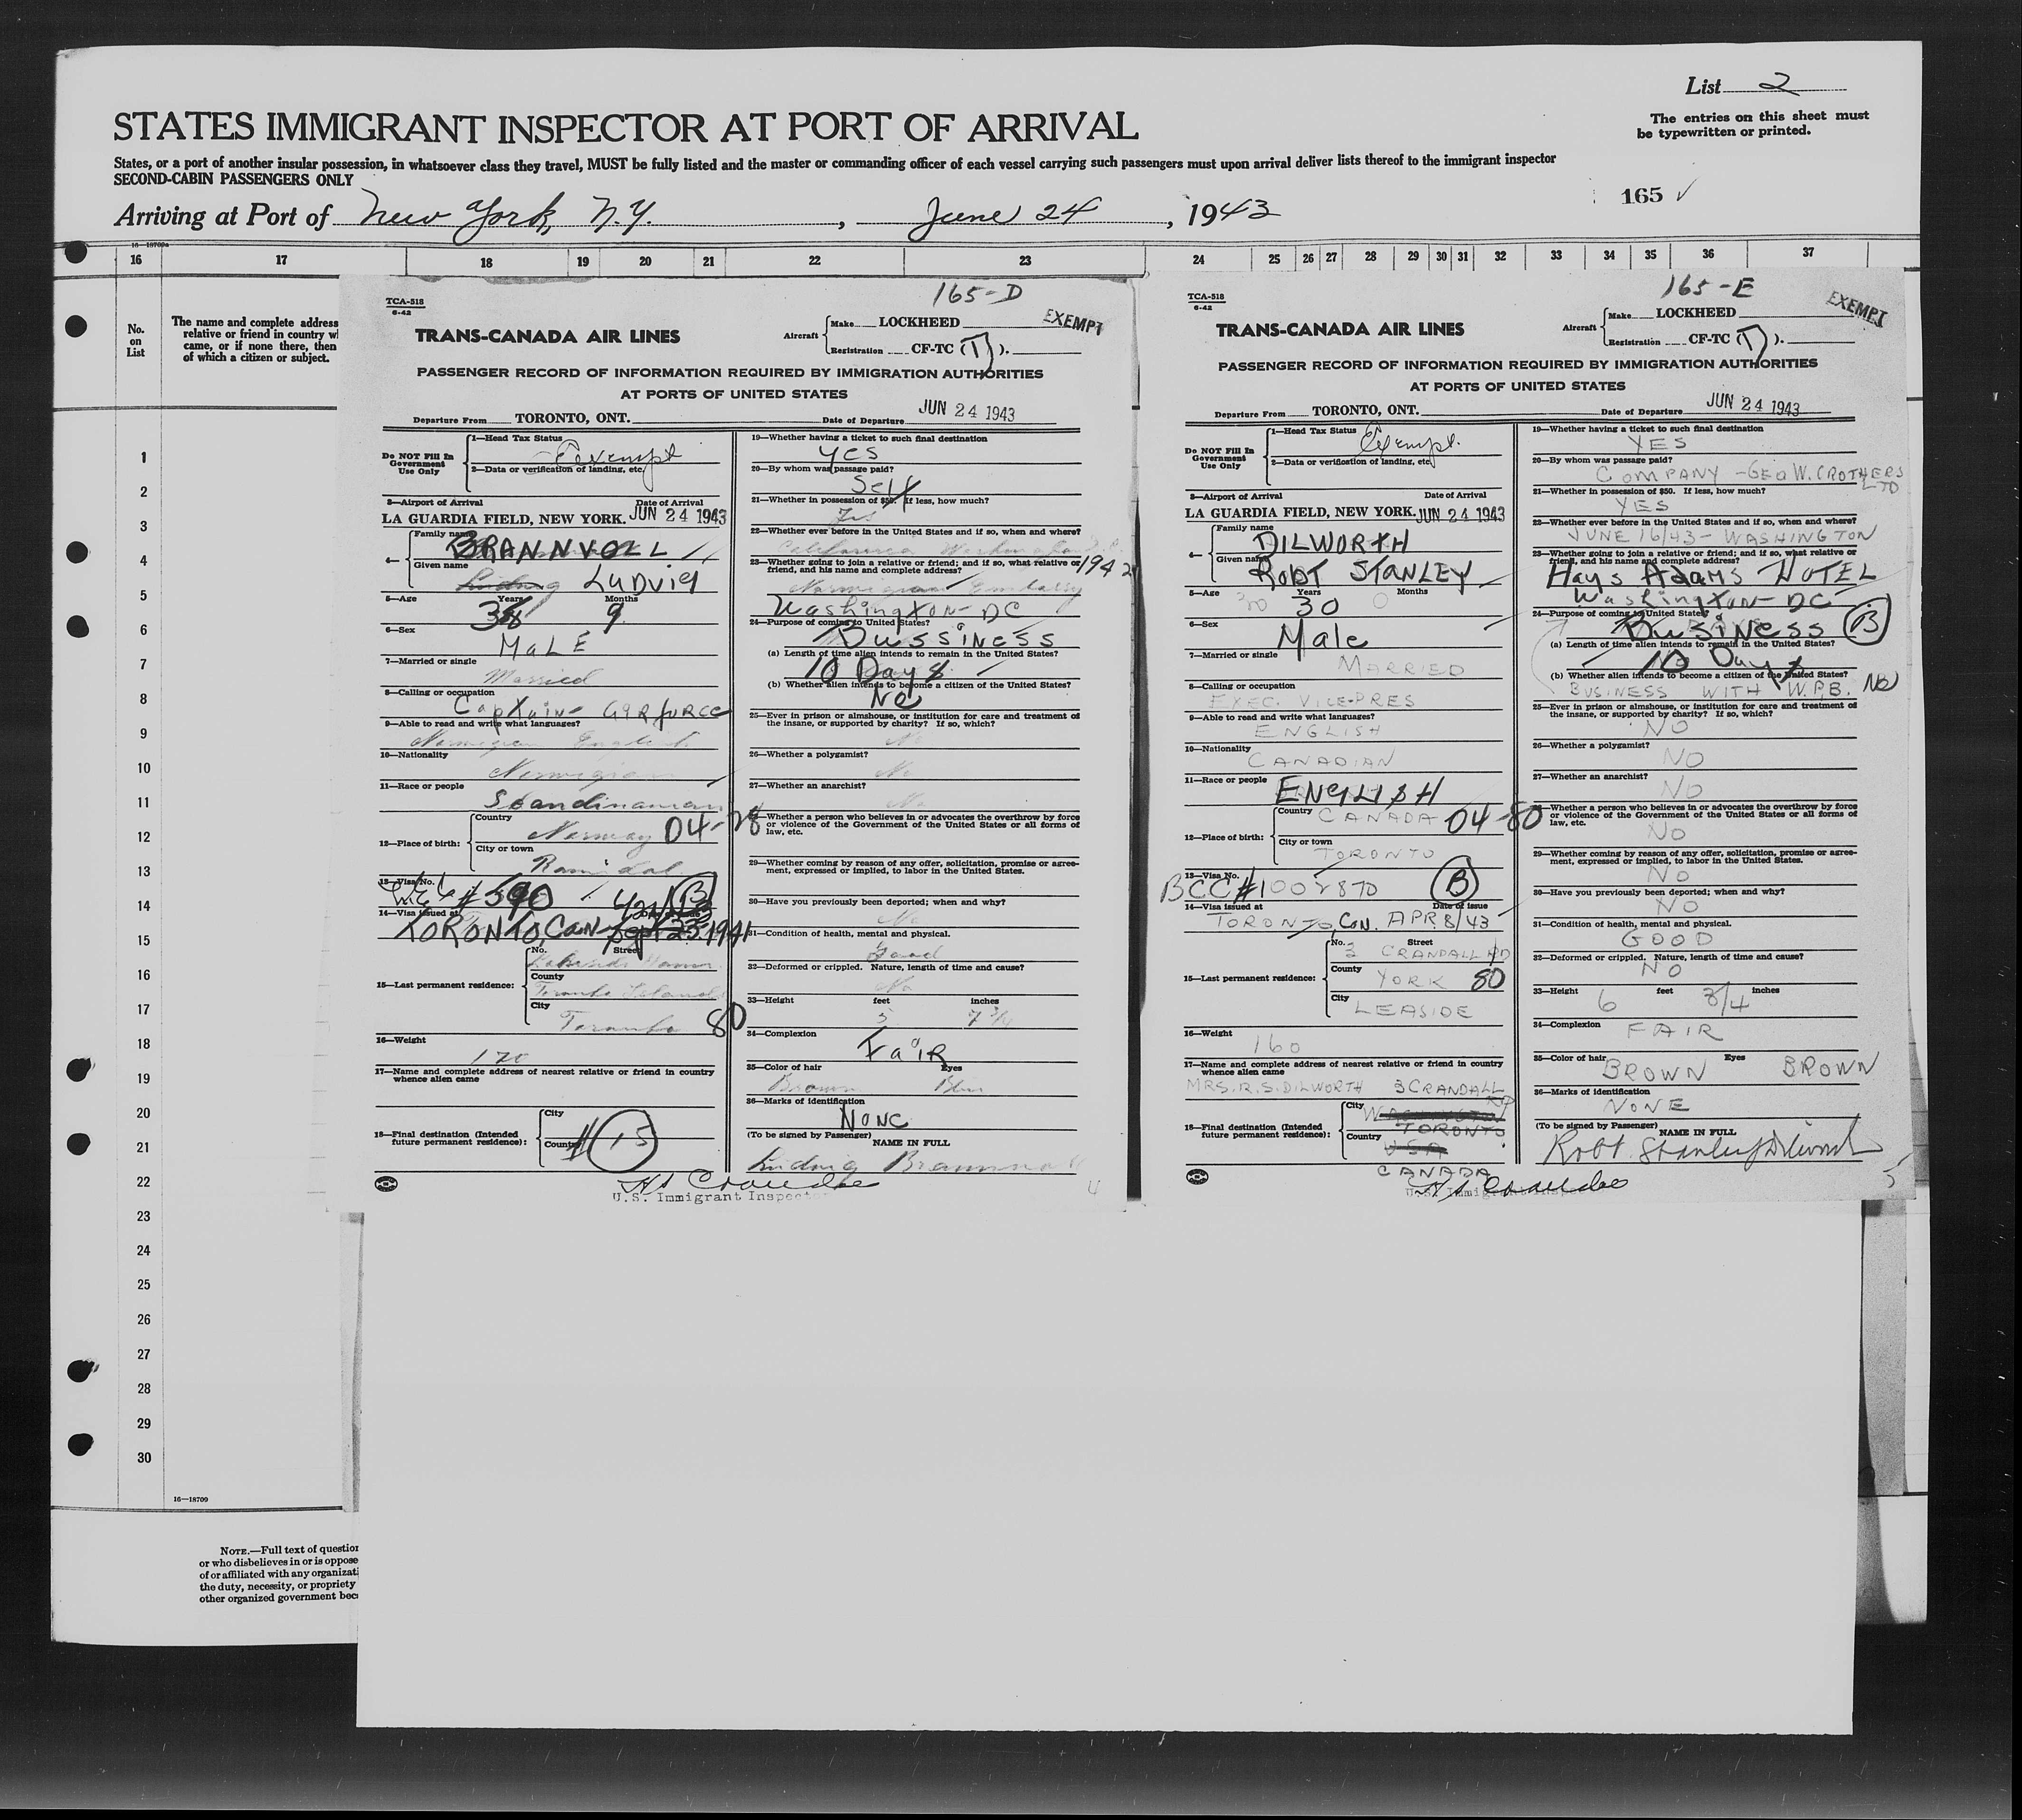 List 2
STATES IMMIGRANT INSPECTOR AT PORT OF ARRIVAL
The entries on this sheet must
be typewritten or printed.
States, or a port of another insular possession, in whatsoever class they travel, MUST be fully listed and the master or commanding officer of each vessel carrying such passengers must upon arrival deliver lists thereof to the immigrant inspector
SECOND-CABIN PASSENGERS ONLY
165 ✓
Arriving at Port of New York, N.Y., June 24, 1943
16 17 18 19 20 21 22 23 24 25 26 27 28 29 30 31 32 33 34 35 36 37
No.
on
List
The name and complete address
relative or friend in country wh
came, or if none there, then
of which a citizen or subject.
1
2
3
4
5
6
7
8
9
10
11
12
13
14
15
16
17
18
19
20
21
22
23
24
25
26
27
28
29
30
16—18709
NOTE.—Full text of question
or who disbelieves in or is oppose
of or affiliated with any organizati
the duty, necessity, or propriety
other organized government beca
165-D
TCA-518
6-42
EXEMPT
TRANS-CANADA AIR LINES
Aircraft
Make LOCKHEED
Registration CF-TC (T).
PASSENGER RECORD OF INFORMATION REQUIRED BY IMMIGRATION AUTHORITIES
AT PORTS OF UNITED STATES
Departure From TORONTO, ONT. Date of Departure JUN 24 1943
Do NOT Fill In
Government
Use Only
1—Head Tax Status
Exempt
2—Data or verification of landing, etc.
3—Airport of Arrival Date of Arrival
LA GUARDIA FIELD, NEW YORK. JUN 24 1943
4—
Family name
BRANNVOLL
Given name
LUDVIG
5—Age Years Months
38 9
6—Sex
MALE
7—Married or single
Married
8—Calling or occupation
Captain- AIRFORCE
9—Able to read and write what languages?
Norwegian English
10—Nationality
Norwegian
11—Race or people
Scandinavian
12—Place of birth:
Country
Norway 04-78
City or town
13—Visa No.
#590 B
14—Visa issued at Date of issue
TORONTO, CAN- Sept 23, 1941
15—Last permanent residence:
No. Street
Lakeside
County
Toronto Island
City
Toronto 80
16—Weight
170
17—Name and complete address of nearest relative or friend in country
whence alien came
18—Final destination (Intended
future permanent residence):
City
Country
# 15
19—Whether having a ticket to such final destination
YES
20—By whom was passage paid?
Self
21—Whether in possession of $50. If less, how much?
Yes
22—Whether ever before in the United States and if so, when and where?
California Washington
1942
23—Whether going to join a relative or friend; and if so, what relative or
friend, and his name and complete address?
Norwegian Embassy
Washington- DC
24—Purpose of coming to United States?
BUSSINESS
(a) Length of time alien intends to remain in the United States?
10 Days
(b) Whether alien intends to become a citizen of the United States?
No
25—Ever in prison or almshouse, or institution for care and treatment of
the insane, or supported by charity? If so, which?
No
26—Whether a polygamist?
No
27—Whether an anarchist?
No
28—Whether a person who believes in or advocates the overthrow by force
or violence of the Government of the United States or all forms of
law, etc.
29—Whether coming by reason of any offer, solicitation, promise or agree-
ment, expressed or implied, to labor in the United States.
30—Have you previously been deported; when and why?
No
31—Condition of health, mental and physical.
Good
32—Deformed or crippled. Nature, length of time and cause?
No
33—Height feet inches
5 7
34—Complexion
FAIR
35—Color of hair Eyes
Brown Blue
36—Marks of identification
NONE
(To be signed by Passenger) NAME IN FULL
Ludvig Brannvoll
U.S. Immigrant Inspector
4
165-E
TCA-518
6-42
EXEMPT
TRANS-CANADA AIR LINES
Aircraft
Make LOCKHEED
Registration CF-TC (T).
PASSENGER RECORD OF INFORMATION REQUIRED BY IMMIGRATION AUTHORITIES
AT PORTS OF UNITED STATES
Departure From TORONTO, ONT. Date of Departure JUN 24 1943
Do NOT Fill In
Government
Use Only
1—Head Tax Status
Exempt.
2—Data or verification of landing, etc.
3—Airport of Arrival Date of Arrival
LA GUARDIA FIELD, NEW YORK. JUN 24 1943
4—
Family name
DILWORTH
Given name
ROBT STANLEY
5—Age Years Months
30 0
6—Sex
Male
7—Married or single
MARRIED
8—Calling or occupation
EXEC. VICE-PRES
9—Able to read and write what languages?
ENGLISH
10—Nationality
CANADIAN
11—Race or people
ENGLISH
12—Place of birth:
Country
CANADA 04-80
City or town
TORONTO
13—Visa No.
BCC #1002870 B
14—Visa issued at Date of issue
TORONTO, CAN. APR. 8/43
15—Last permanent residence:
No. Street
3 CRANDALL RD
County
YORK 80
City
LEASIDE
16—Weight
160
17—Name and complete address of nearest relative or friend in country
whence alien came
MRS. R. S. DILWORTH 3 CRANDALL
RD
18—Final destination (Intended
future permanent residence):
City WASHINGTON
TORONTO
Country
USA
CANADA
19—Whether having a ticket to such final destination
YES
20—By whom was passage paid?
COMPANY - GEO W. CROTHERS
LTD
21—Whether in possession of $50. If less, how much?
YES
22—Whether ever before in the United States and if so, when and where?
JUNE 16/43 - WASHINGTON
23—Whether going to join a relative or friend; and if so, what relative or
friend, and his name and complete address?
Hays Adams HOTEL
Washington- DC
24—Purpose of coming to United States?
BUSINESS B
(a) Length of time alien intends to remain in the United States?
10 Days
(b) Whether alien intends to become a citizen of the United States?
BUSINESS WITH W.P.B. NO
25—Ever in prison or almshouse, or institution for care and treatment of
the insane, or supported by charity? If so, which?
NO
26—Whether a polygamist?
NO
27—Whether an anarchist?
NO
28—Whether a person who believes in or advocates the overthrow by force
or violence of the Government of the United States or all forms of
law, etc.
NO
29—Whether coming by reason of any offer, solicitation, promise or agree-
ment, expressed or implied, to labor in the United States.
NO
30—Have you previously been deported; when and why?
NO
31—Condition of health, mental and physical.
GOOD
32—Deformed or crippled. Nature, length of time and cause?
NO
33—Height feet inches
6 3/4
34—Complexion
FAIR
35—Color of hair Eyes
BROWN BROWN
36—Marks of identification
NONE
(To be signed by Passenger) NAME IN FULL
Robt. Stanley Dilworth
U.S. Immigrant Inspector
5